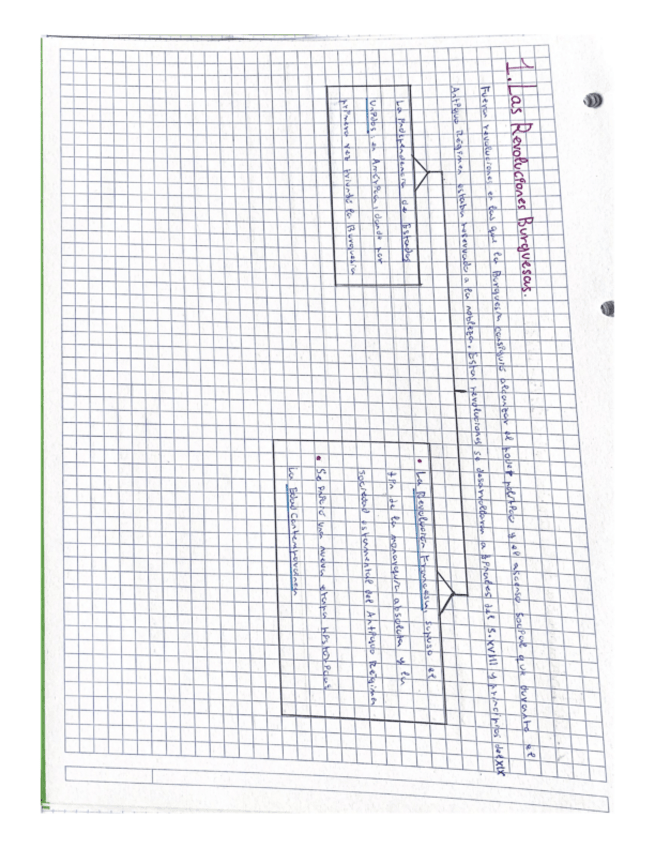 1. Las Revoluciones Burguesas.
Fueron revoluciones en las que la Burguesía consiguió alcanzar el poder político y el ascenso social que durante el
Antiguo Régimen estaba reservado a la nobleza. Estas revoluciones se desarrollaron a finales del S.XVIII y principios del XIX
La independencia de Estados
Unidos, en América, donde por
primera vez triunfó la Burguesía
• La Revolución Francesa, supuso el
fin de la monarquía absoluta y la
sociedad estamental del Antiguo Régimen
• Se inició una nueva etapa histórica
La Edad Contemporanea